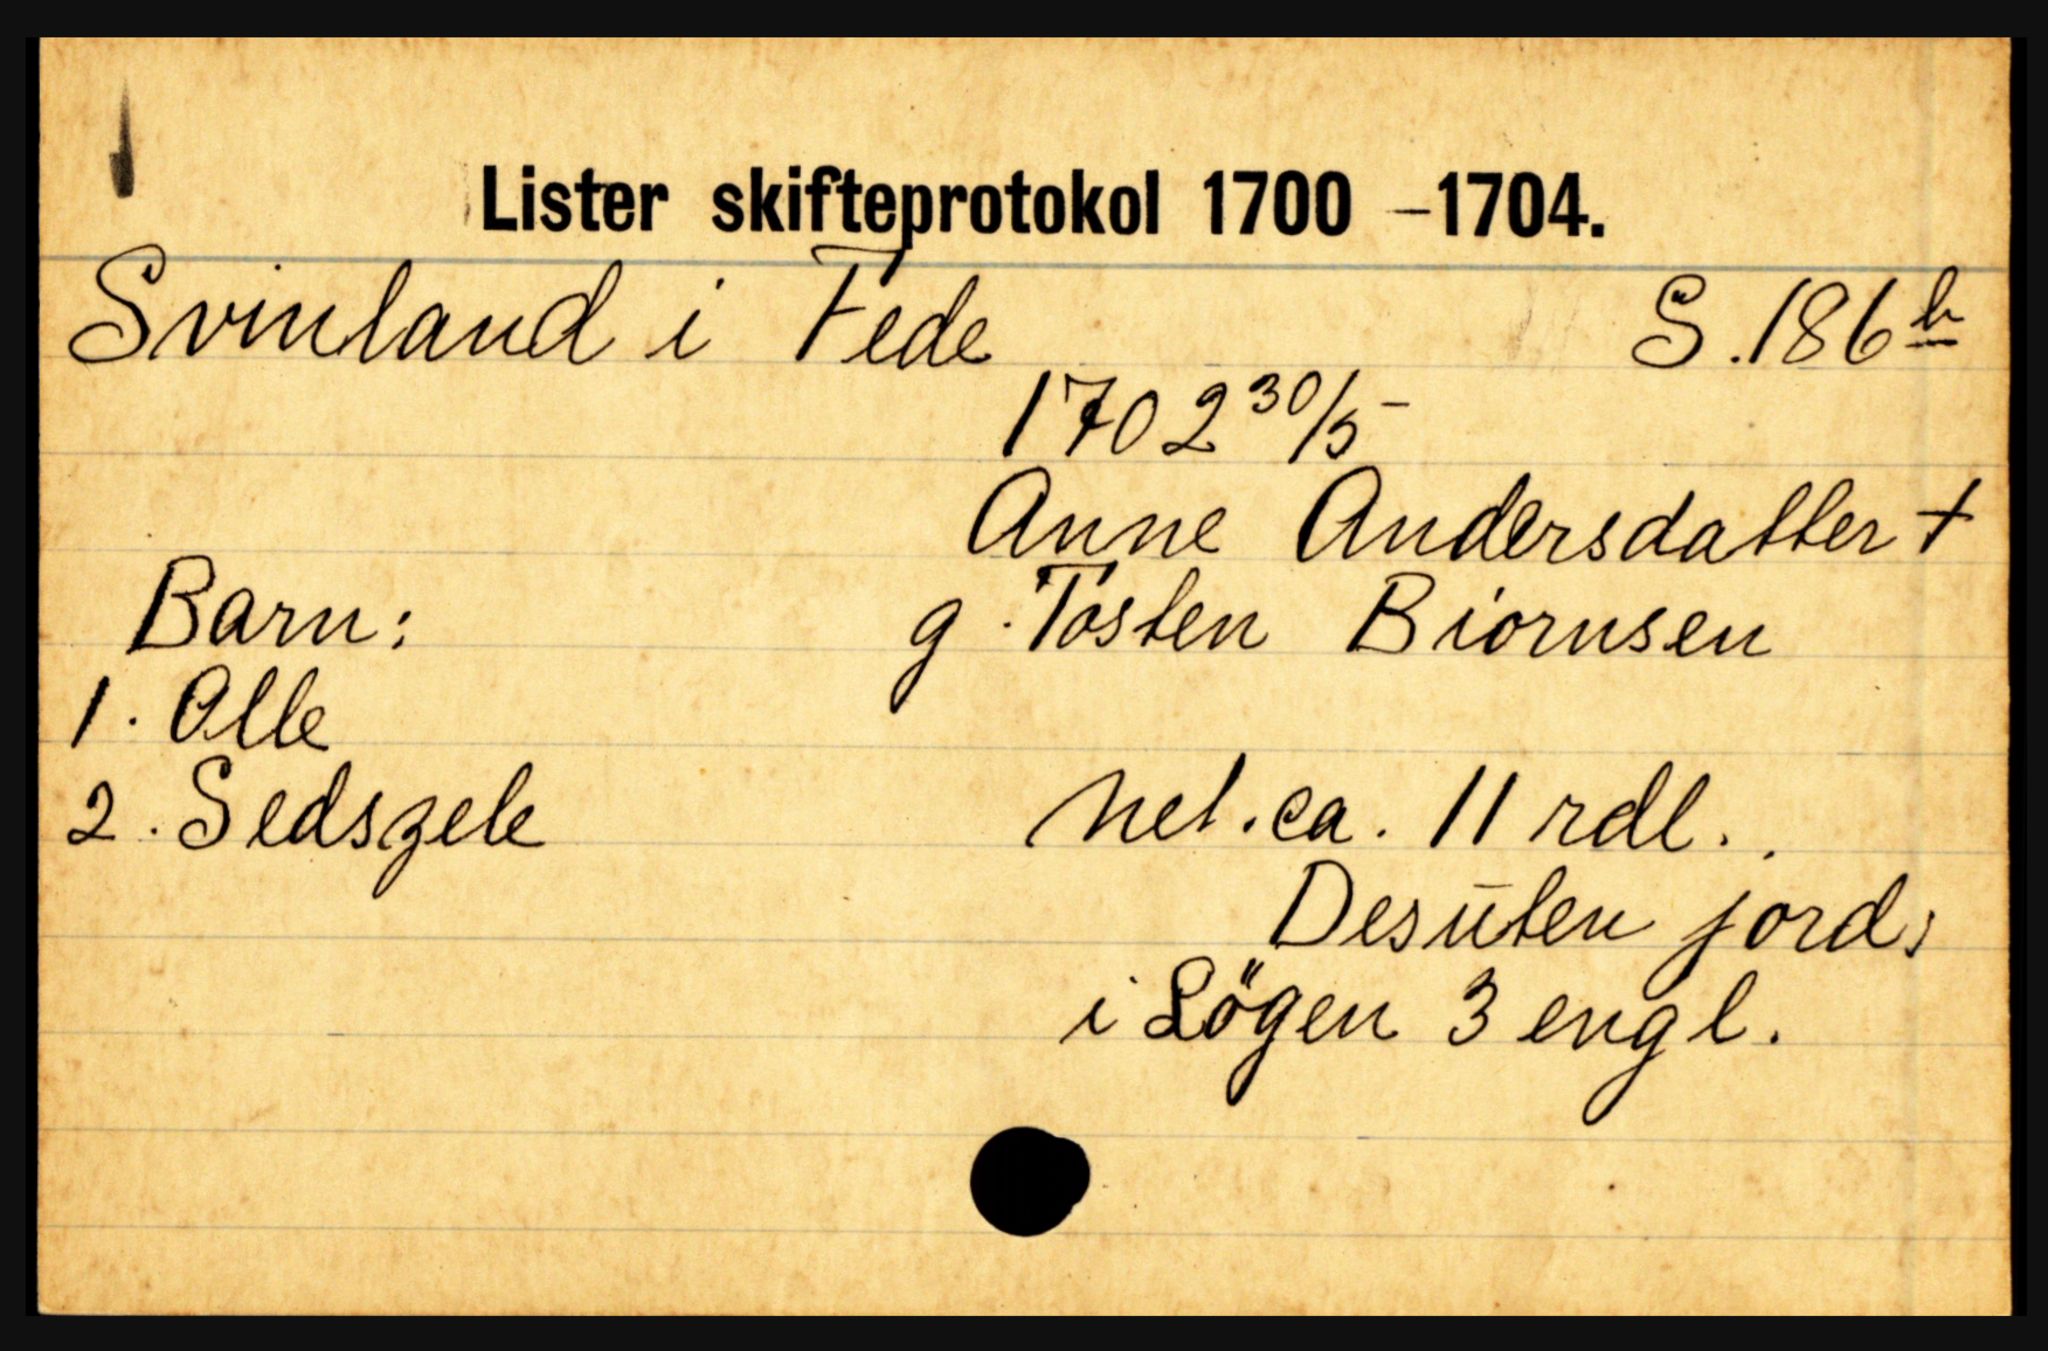 Lister skifteprotokol 1700 – 1704.
Svinland i Fede S. 186 b
1702 30/5 –
Anne Andersdatter +
Barn: g. Tosten Biornsen
1. Olle
2. Sedszele net. ca. 11 rdl.
Desuten jord
i Lögen 3 engl.